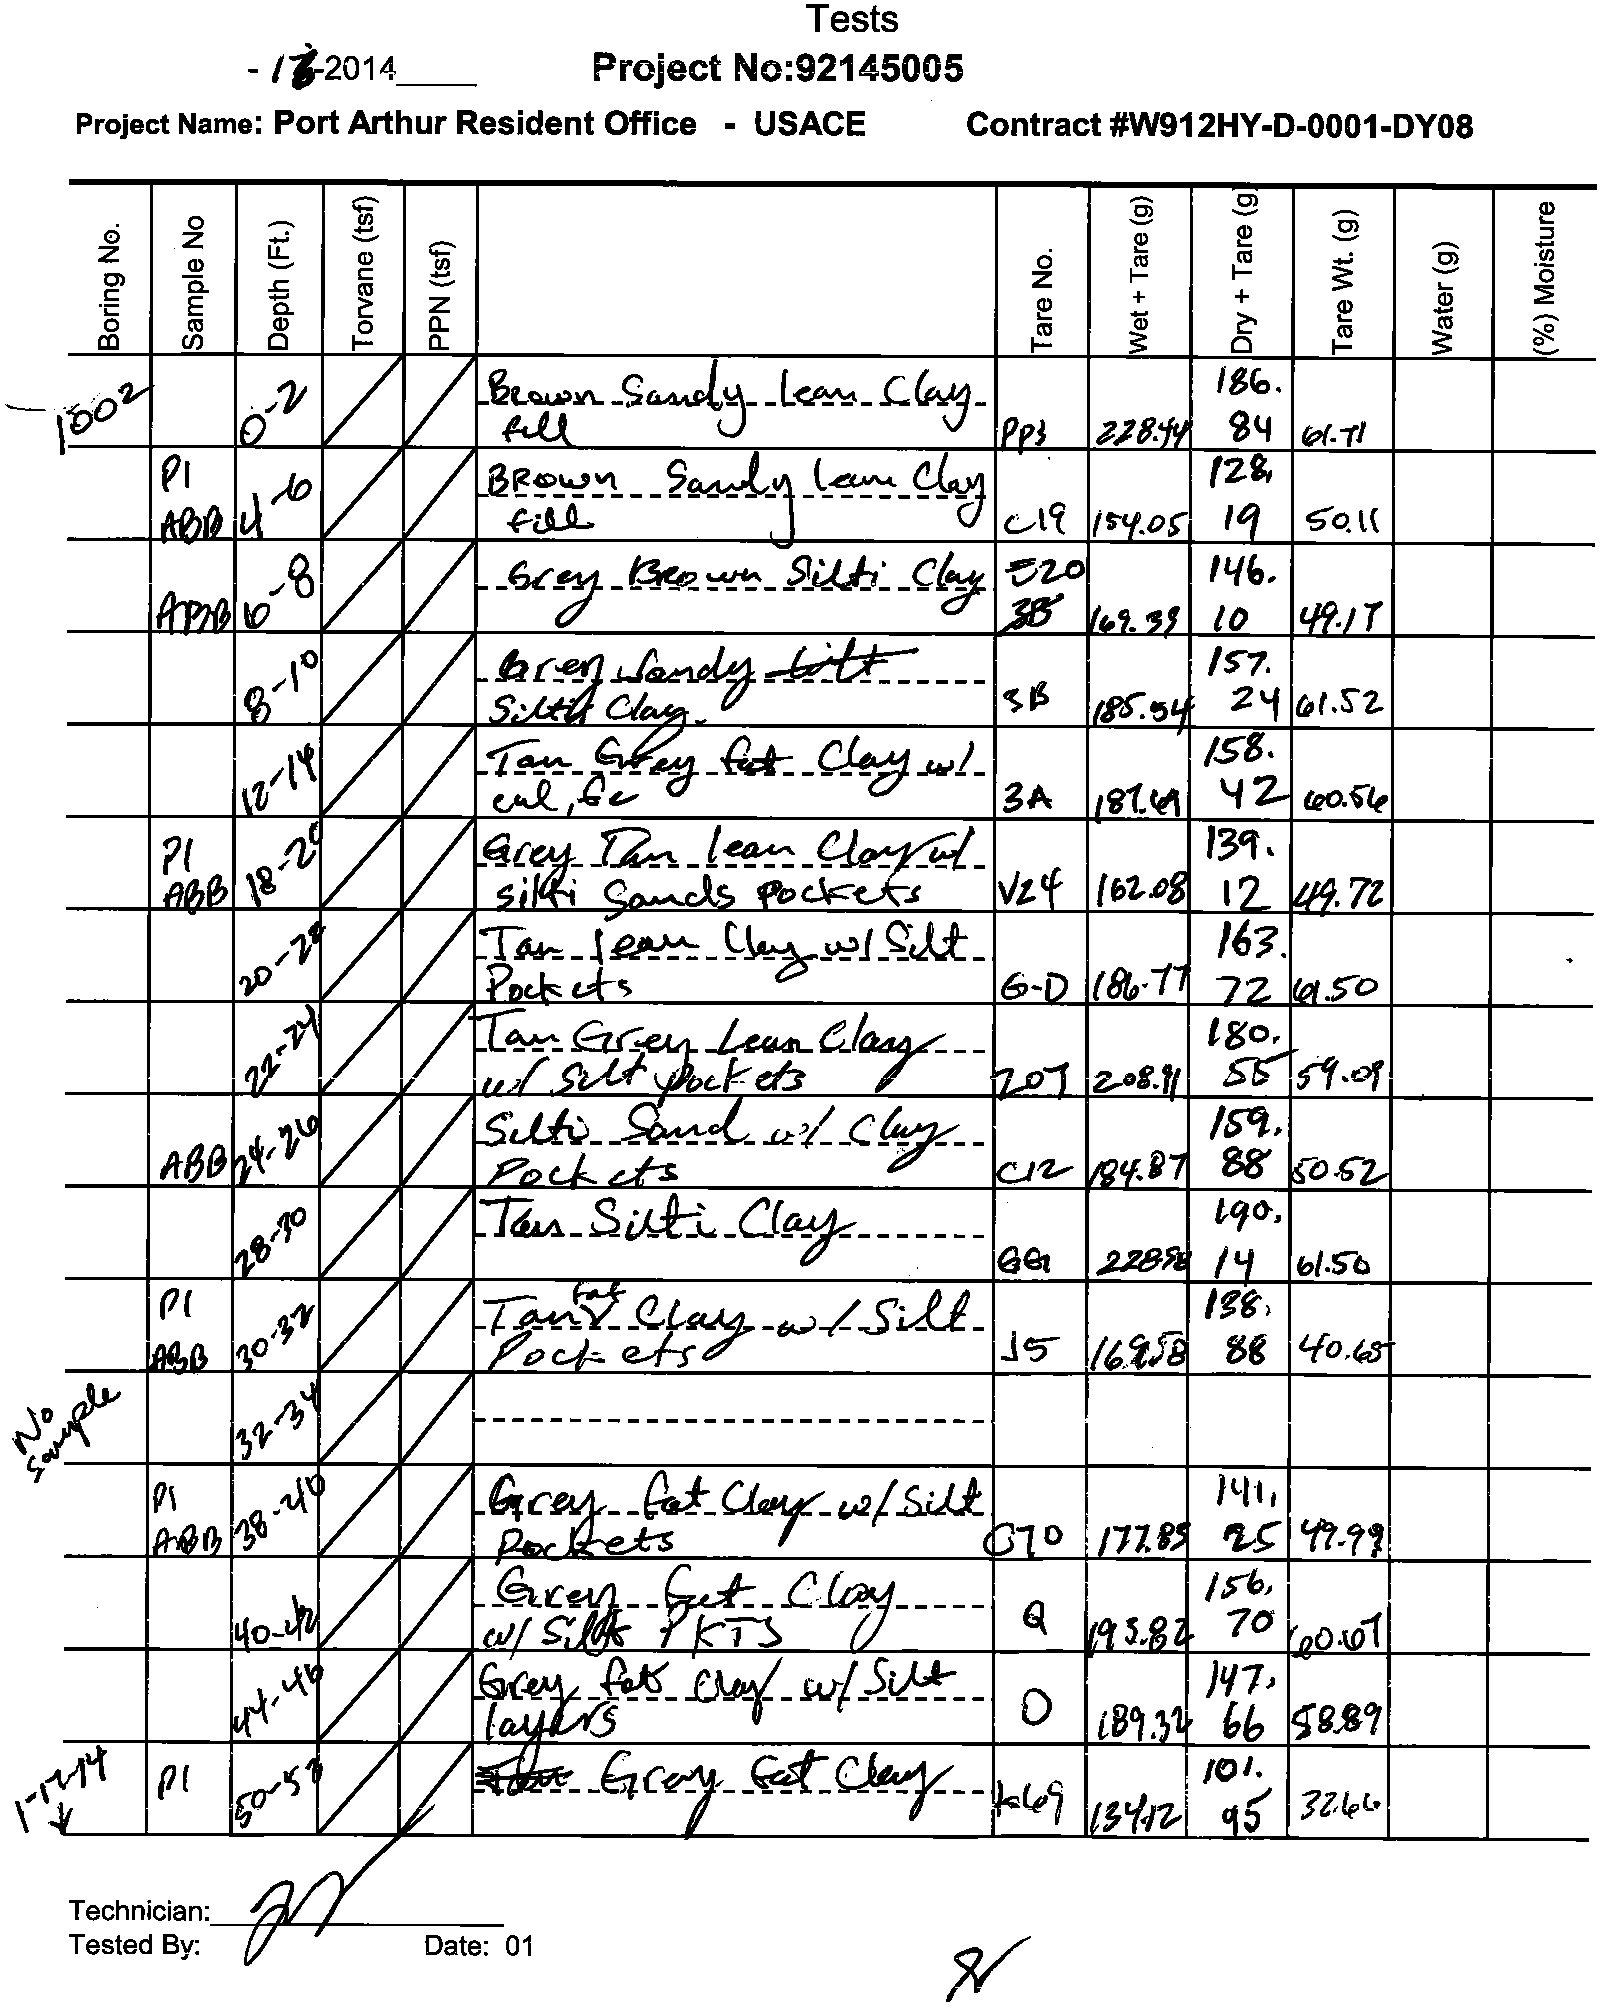 Tests
-2014____ Project No:92145005
Project Name: Port Arthur Resident Office - USACE Contract #W912HY-D-0001-DY08
Boring No. Sample No Depth (Ft.) Torvane (tsf) PPN (tsf) Tare No. Wet + Tare (g) Dry + Tare (g) Tare Wt. (g) Water (g) (%) Moisture
1002 0-2 Brown Sandy lean Clay 186.
fill 228.44 84 61.71
PI 4-6 Brown Sandy lean Clay 128.
ABB fill C19 154.05 19 50.11
6-8 Grey Brown Silti Clay E20 146.
ABB 3B 169.39 10 49.17
8-10 Grey Sandy Silt 157.
Silti Clay. 3B 185.54 24 61.52
12-14 Tan Grey fat Clay w/ 158.
cal, fe 3A 187.69 42 60.56
PI 18-20 Grey Tan lean Clay w/ 139.
ABB silti Sands pockets V24 162.08 12 49.72
20-22 Tan lean Clay w/ Silt 163.
Pockets G-D 186.77 72 61.50
22-24 Tan Grey Lean Clay 180.
w/ Silt pockets Z07 208.91 55 59.09
24-26 Silti Sand w/ Clay 159.
ABB Pockets C12 184.87 88 50.52
28-30 Tan Silti Clay 190.
GG 228.98 14 61.50
PI 30-32 Tan fat Clay w/ Silt 138.
ABB Pockets J5 169.58 88 40.65
No Sample 32-34
PI 38-40 Grey fat Clay w/ Silt 141.
ABB Pockets C70 177.85 25 49.99
40-42 Grey Fat Clay 156.
w/ Silt PKTS Q 193.82 70 60.67
44-46 Grey fat Clay w/ Silt 147.
layers O 189.32 66 58.89
1-17-14 PI 50-52 Gray fat Clay 101.
K69 134.12 95 32.66
Technician:
Tested By: Date: 01